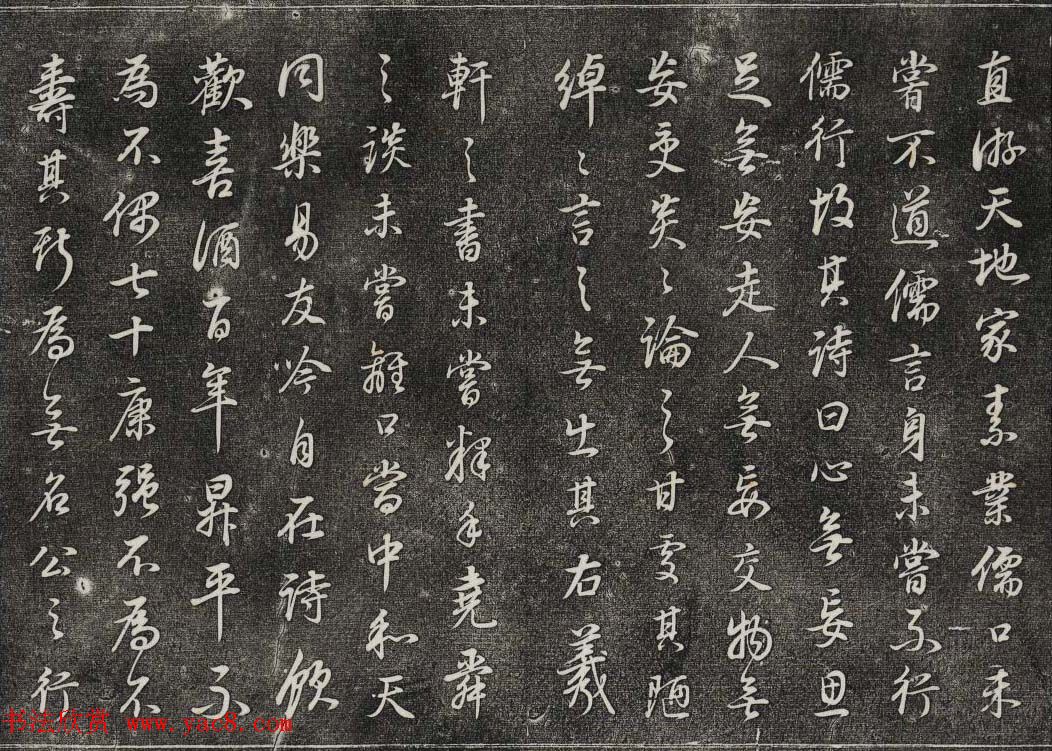 直游天地家素業儒口未
嘗不道儒言身未嘗不行
儒行故其詩曰心無妄思
足無妄走人無妄交物無
妄受炎炎論之甘處其陋
綽綽言之無出其右羲
軒之書未嘗釋手堯舜
之談未嘗離口當中和天
同樂易友吟自在詩飲
歡喜酒百年昇平不
為不偶七十康强不為不
壽其斯為無名公之行
书法欣赏 www.yac8.com